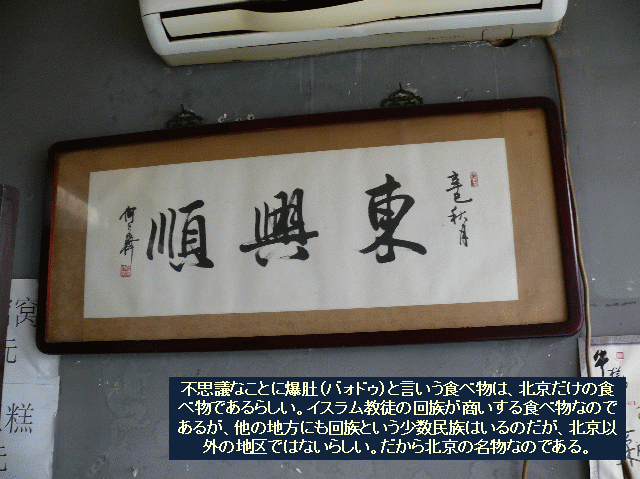 辛巳秋月
東興順
窝
元
糕
元
牛
不思議なことに爆肚（バォドゥ）と言いう食べ物は、北京だけの食
べ物であるらしい。イスラム教徒の回族が商いする食べ物なので
あるが、他の地方にも回族という少数民族はいるのだが、北京以
外の地区ではないらしい。だから北京の名物なのである。